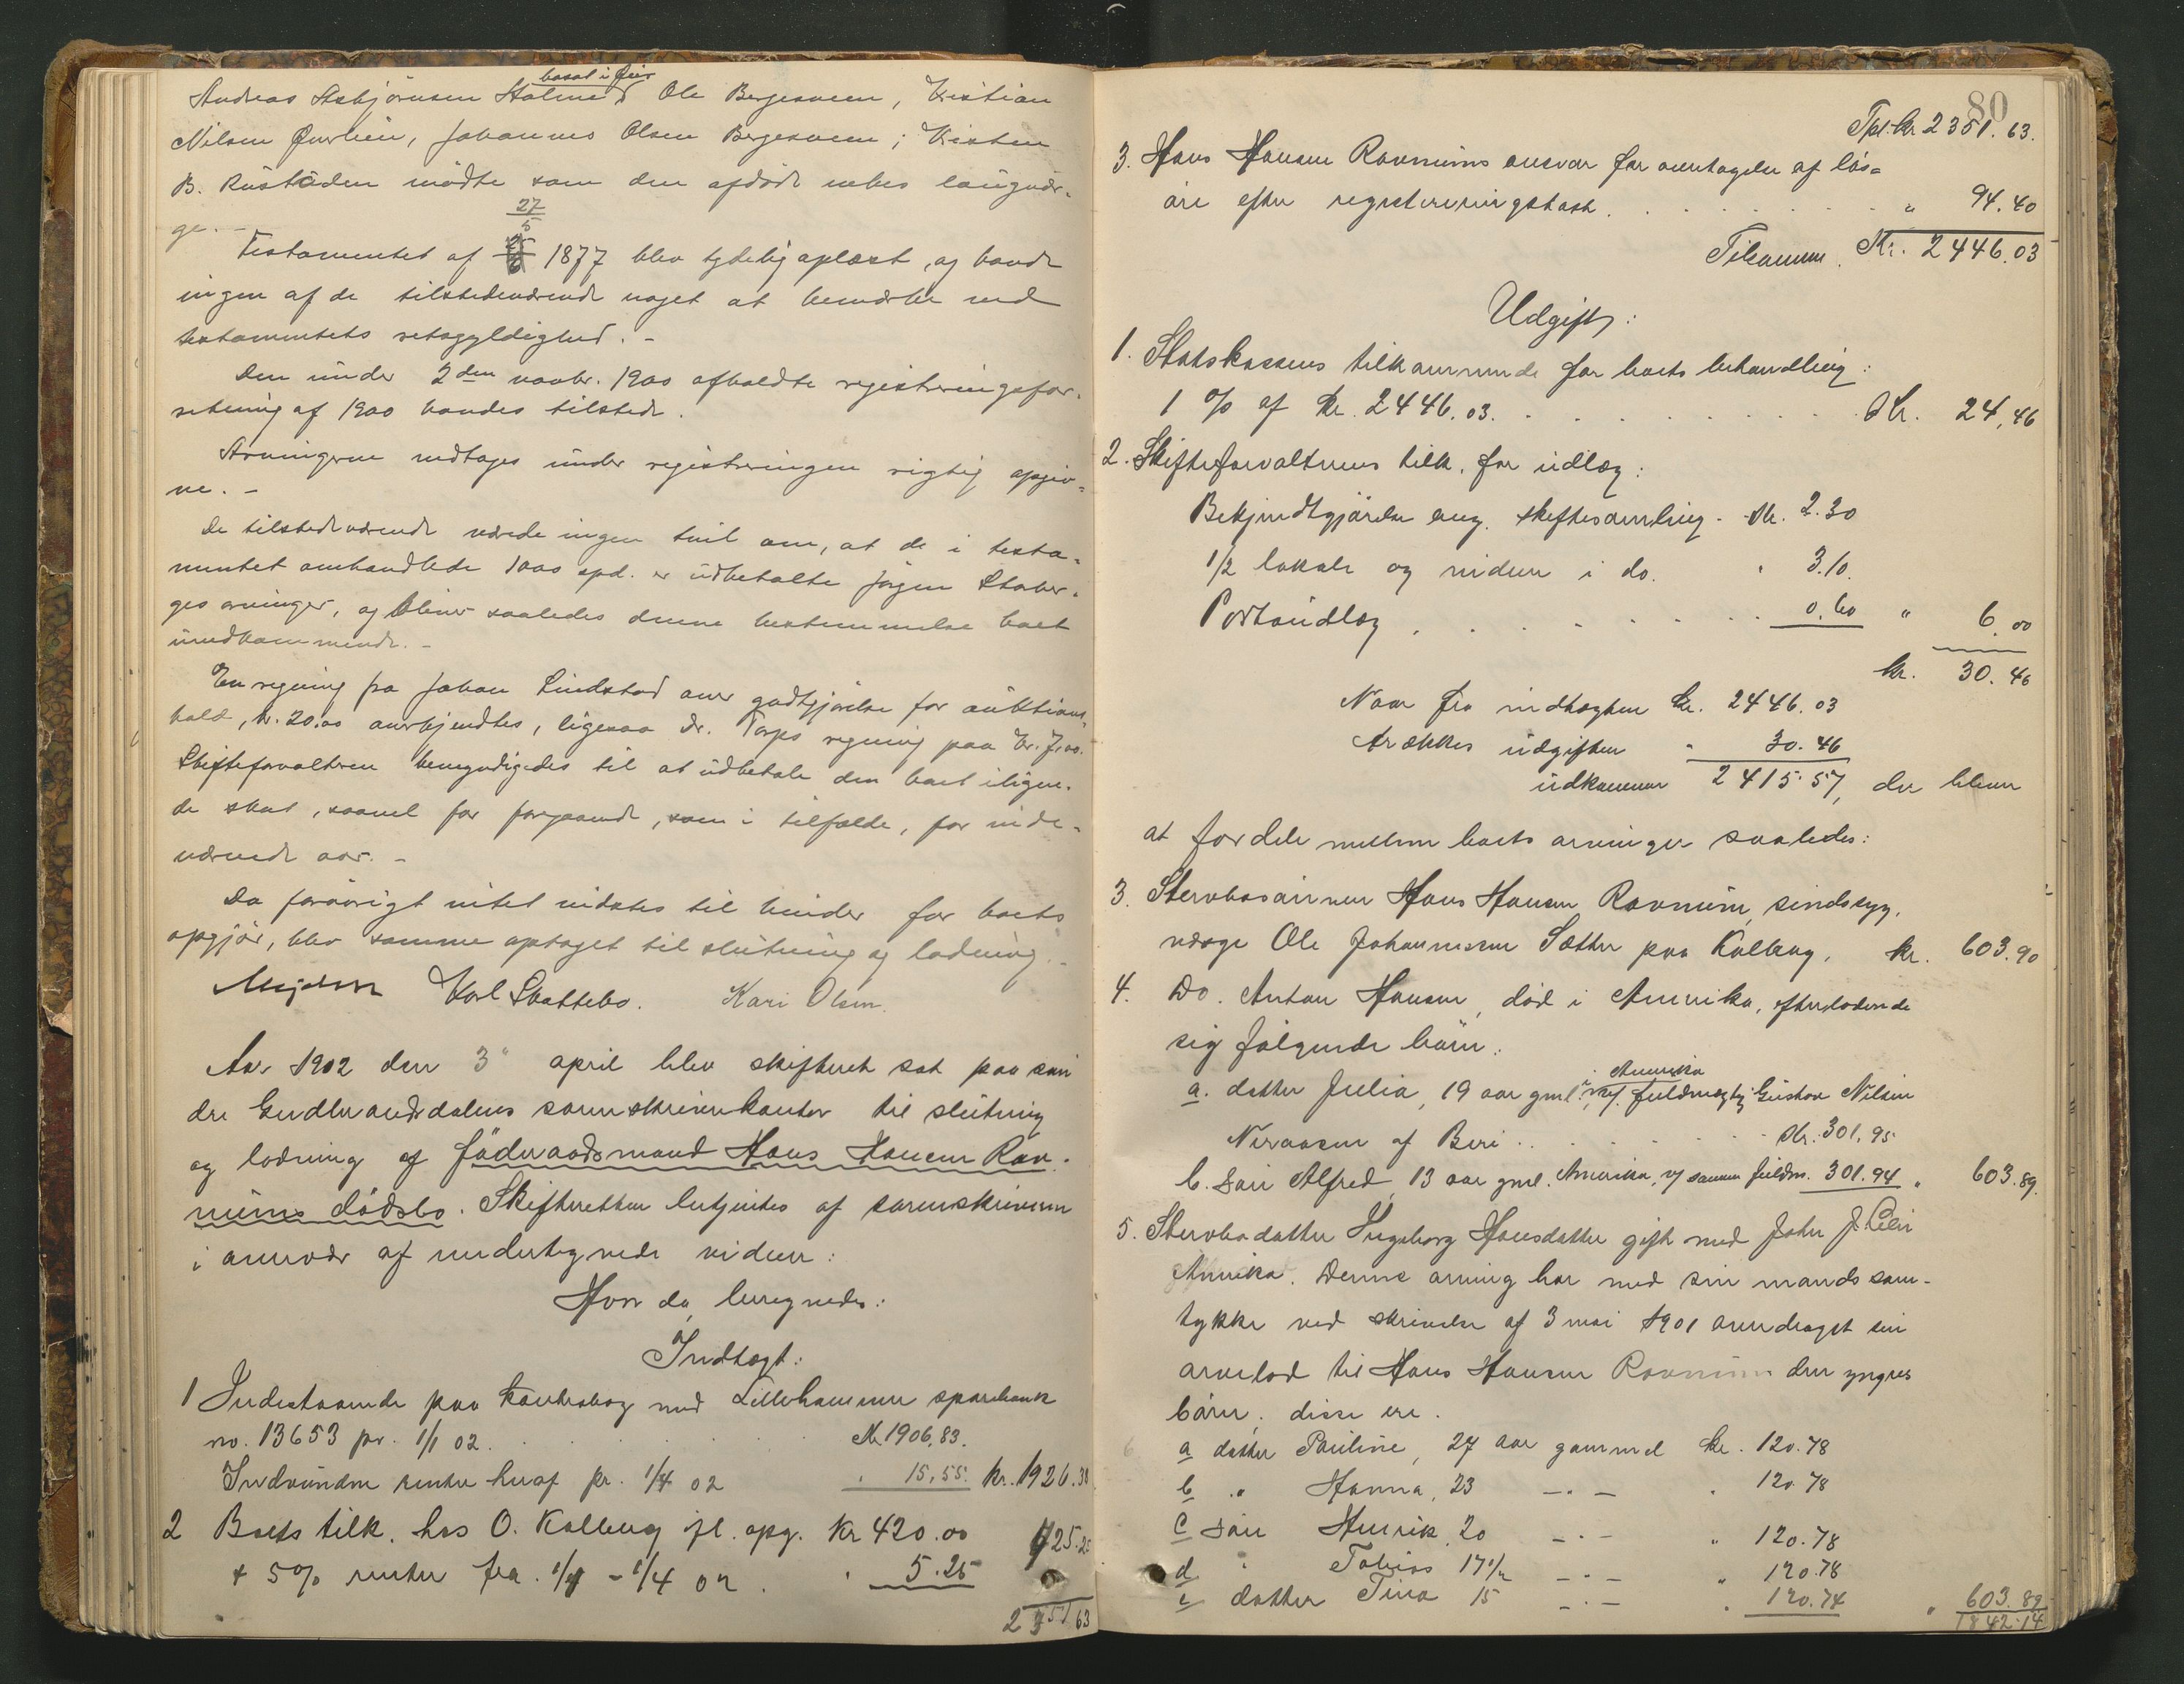 bosat i Øier
Andreas Asbjørnsen Holme Ole Bergesveen, Kristian
Nilsen Johannes Olsen Bergesveen; Kristen
B. Rustaden mødte som den afdøde enkes laugvær-
ge. -
27/5
Testamentet af 1877 blev tydelig oplæst, og havde
ingen af de tilstedeværende noget at bemærke ved
testamentets retsgyldighed. -
Den under 2den novbr. 1900 afholdte registreringsfor-
retning af 1900 havdes tilstede.
Arvingerne vedtoges under registreringen rigtig opgiv-
ne. -
De tilstedeværende nærede ingen tvil om, at de i testa-
mentet omhandlede 1000 spd. er udbetalte Jørgen Staber-
ges arvinger, og bliver saaledes denne bestemmelse boet
uvedkommende. -
En regning fra Johan Lindstad over godtgjørelse for auktions-
hold, kr. 20.00 anerkjendtes, ligesaa Dr. Torps regning paa kr. 7,00.
Skifteforvalteren bemyndigedes til at udbetale den boet ilign-
de skat, saavel for foregaaende, som i tilfælde, for inde-
værende aar. -
Da forøvrigt intet vidstes til hinder for boets
opgjør, blev samme optaget til slutning og lodning. -
Mejdell Karl Skattebo. Kari Olsen.
Aar 1902 den 3" april blev skifteret sat paa søn
dre Gudbrandsdalens sorenskriverkontor til slutning
og lodning af føderaadsmand Hans Hansen Rav-
nums dødsbo. Skifteretten betjentes af sorenskriveren
i overvær af undertegnede vidner:
Hvor da beregnedes:
Indtægt:
1 Indestaaende paa kontrabog med Lillehammer sparebank
no. 13653 pr. 1/1 02. . . . . Kr. 1906,83.
Indvundne renter heraf pr. 1/4 02 " 15,55. kr. 1926.38
2 Boets tilk. hos O. Kalberg ifl. opg. Kr 420.00
+ 5% renter fra 1/1 - 1/4 02 . " 5.25 425.25
2351 63
80
Tpt. kr 2351.63.
3. Hans Hansen Ravnums ansvar for overtagelse af løs-
øre efter registreringstakst. . . . . . " 94.40
Tilsammen. Kr. 2446.03
Udgift:
1. Statskassens tilkommende for boets behandling:
1 % af kr. 2446.03. . . . . . . Kr. 24,46
2. Skifteforvalterens tilk. for udlæg:
Bekjendtgjørelse ang. skiftesamling - Kr. 2.30
1/2 lokale og vidner i do. " 3.10.
Portoudlæg . . . . . . . 0.60 " 6.00
kr. 30.46
Naar fra indtægten kr. 2446.03
trækkes udgiften " 30.46
udkommer 2415.57, der bliver
at fordele mellem boets arvinger saaledes:
3. Stervbosønnen Hans Hansen Ravnum, sindssyg,
værge Ole Johannesen Sæther paa Kalberg, kr. 603.90
4. Do. Anton Hansen, død i Amerika, efterladende
sig følgende børn:
a. datter Julia, 19 aar gml. i Amerika v/ fuldmægtig Gustav Nilsen
af Biri . . . . . . Kr. 301,95
b. søn Alfred, 13 aar gml. Amerika, v/ samme fuldm. 301.94 " 603.89.
5. Stervbodatter Ingeborg Hansdatter gift med John J.
Amerika. Denne arving har med sin mands sam-
tykke ved skrivelse af 3 mai 1901 overdraget sin
arvelod til Hans Hansen Ravnum den yngres
børn. disse ere.
a datter Pauline, 27 aar gammel kr. 120.78
b " Hanna, 23 - " - " 120.78
c søn Henrik, 20 - " - " 120.78
d " Tobias 17 1/2 - " - " 120.78
e datter Tina 15 - " - " 120.74 " 603.89
1842.14